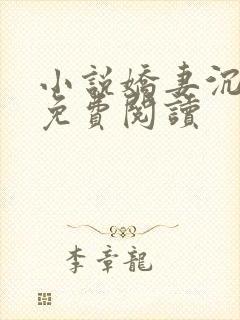 小說嬌妻沉
免費閱讀
李章龍